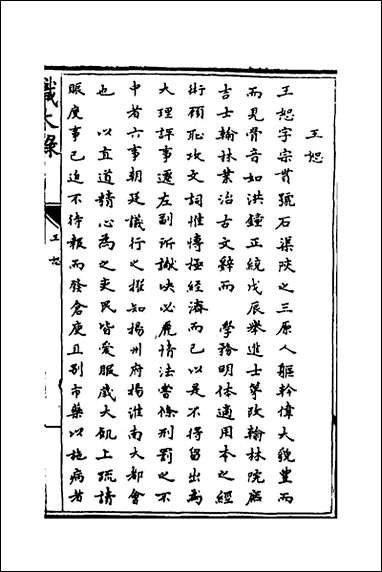 王恕
王恕字宗貫號石渠陜之三原人軀幹偉大貌豐而
而見骨音如洪鐘正統戊辰舉進士等改翰林院庶
吉士翰林業治古文辭而 學務明体適用本之經
術顧恥攻文詞惟博極經濟而已以是不得留出為
大理評事遷左副所讞决必麗情法嘗條刑罰之不
中者六事朝廷議行之擢知揚州府揚淮南大都會
也 以直道精心為之吏民皆愛服歲大飢上疏請
賑度事已迫不待報而發倉庾且別市藥以施病者
識大錄
王恕